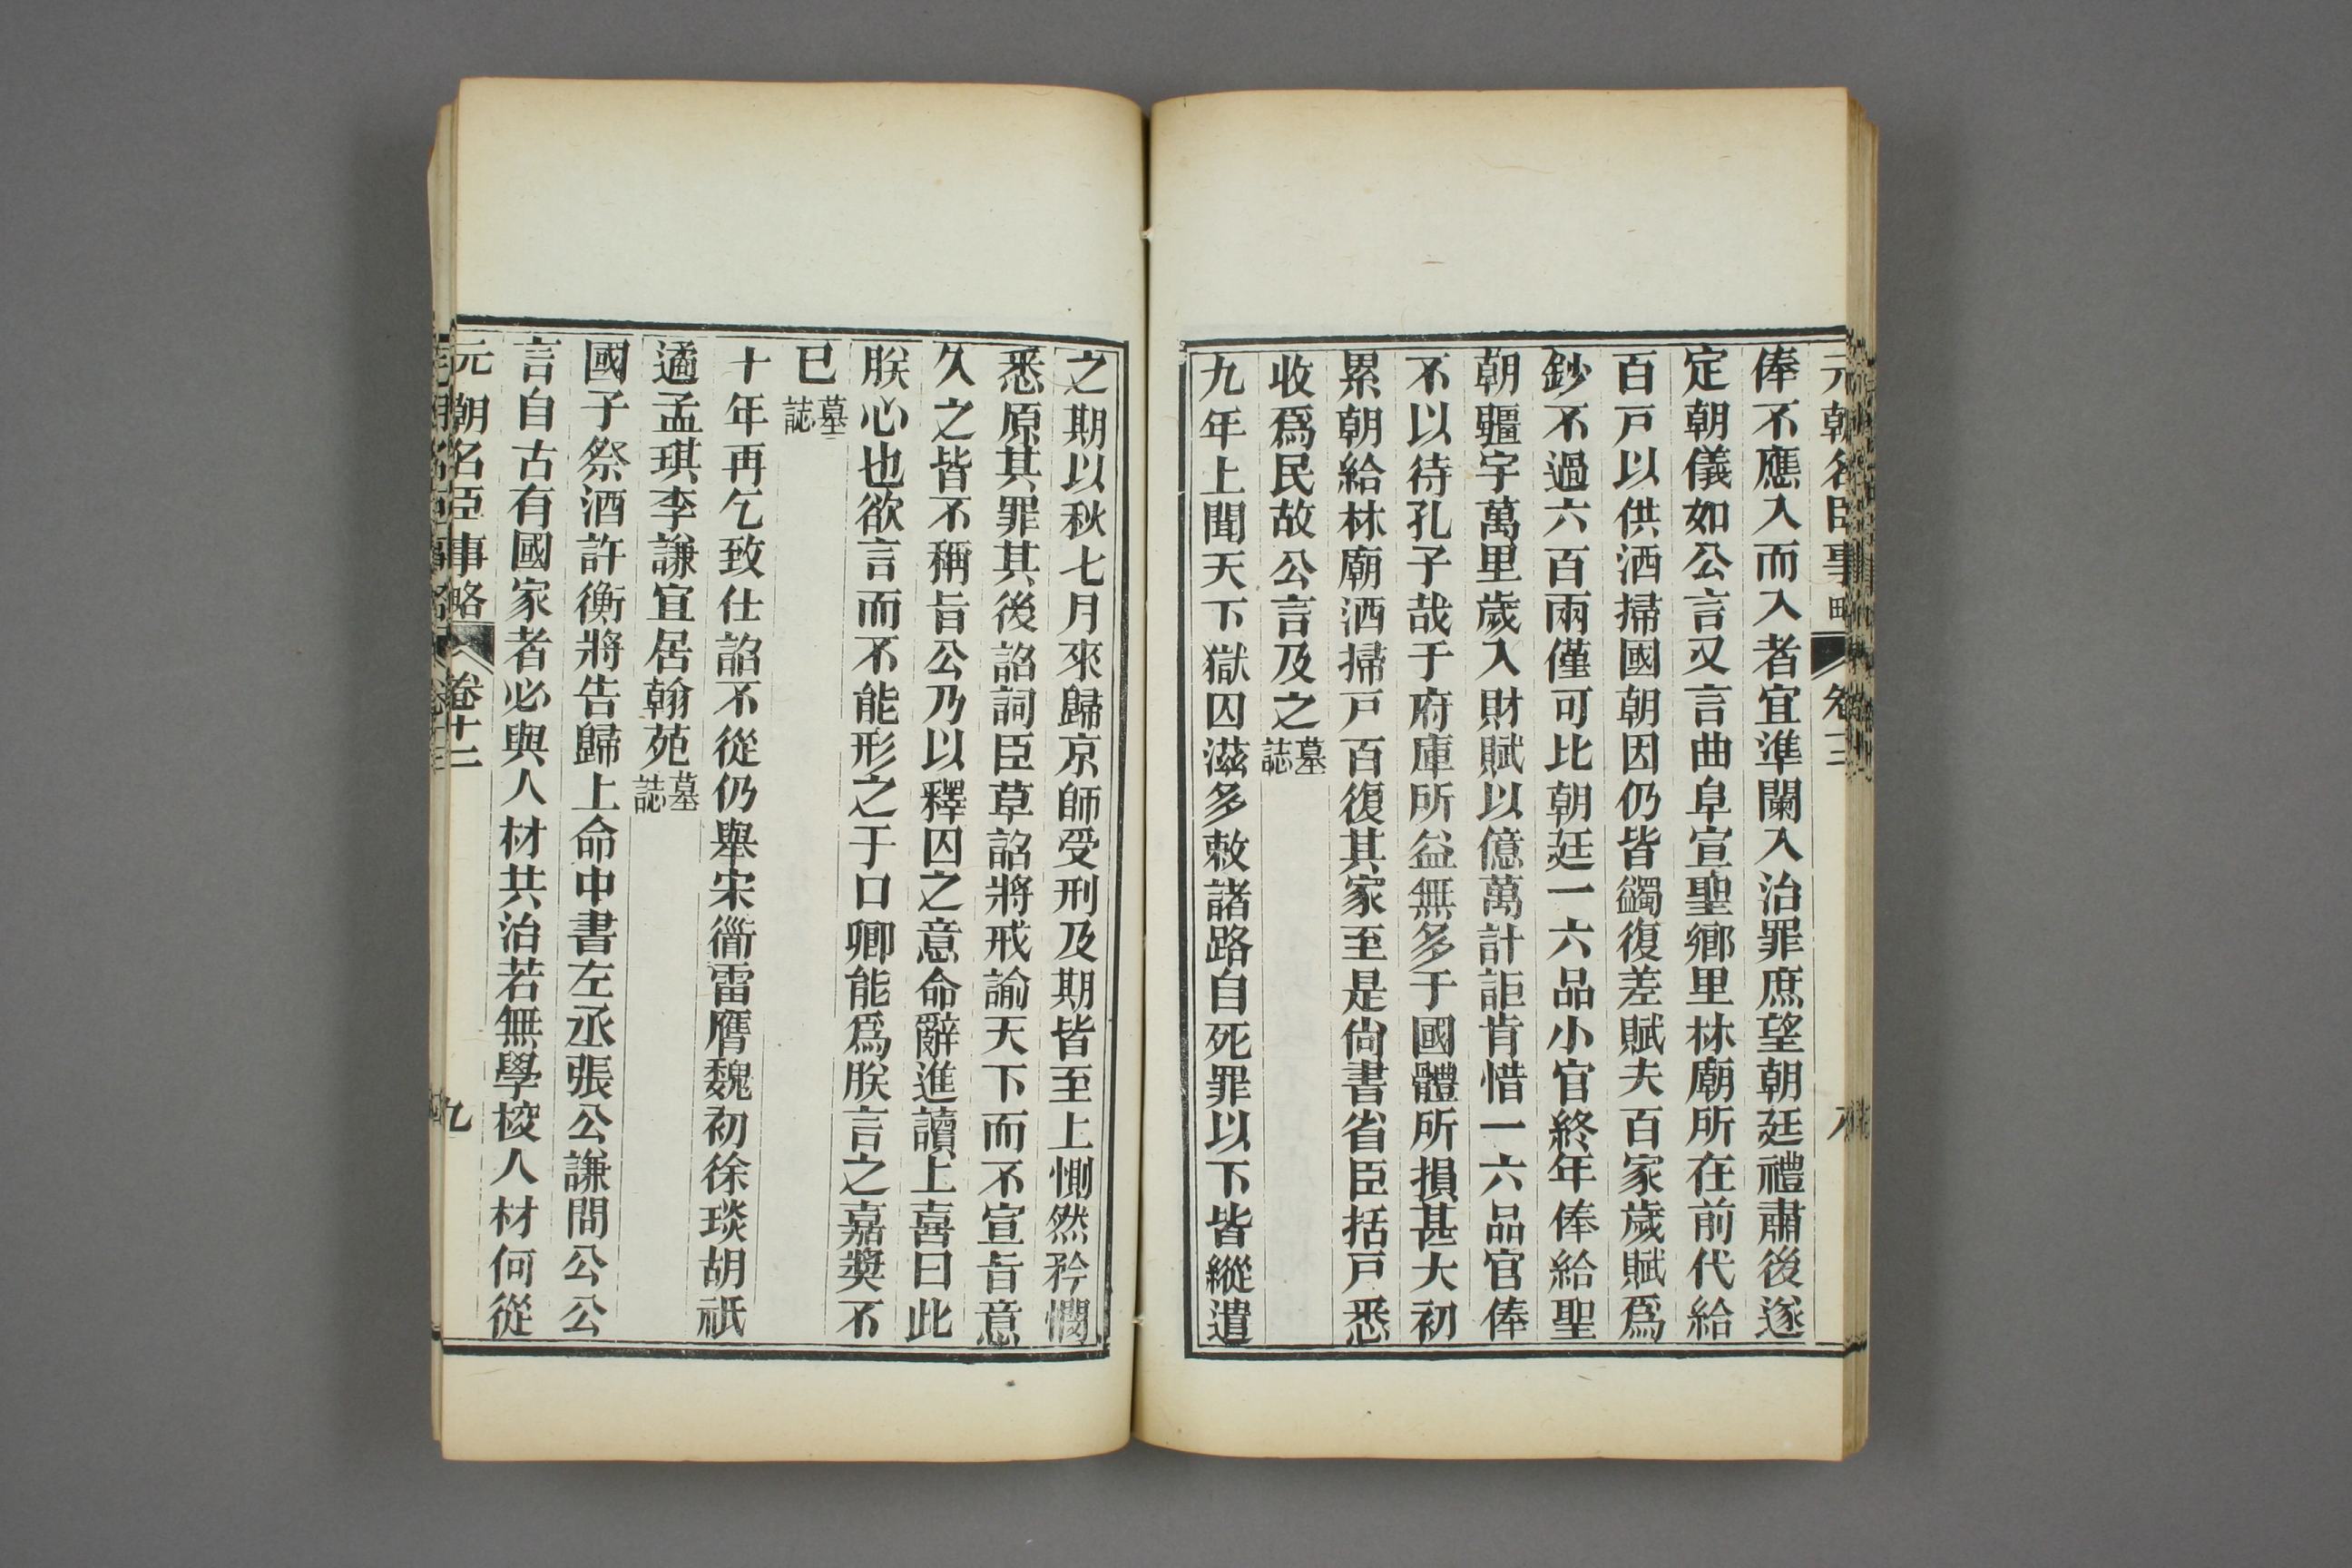 元朝名臣事略 卷十二 八
俸不應入而入者宜準闌入治罪庶望朝廷禮肅後遂
定朝儀如公言又言曲阜宣聖鄉里林廟所在前代給
百戸以供洒掃國朝因仍皆蠲復差賦夫百家歲賦爲
鈔不過六百兩僅可比朝廷一六品小官終年俸給聖
朝疆宇萬里歲入財賦以億萬計詎肯惜一六品官俸
不以待孔子哉于府庫所益無多于國體所損甚大初
累朝給林廟洒掃戸百復其家至是尙書省臣括戸悉
收爲民故公言及之墓誌
九年上聞天下獄囚滋多敕諸路自死罪以下皆縱遣
之期以秋七月來歸京師受刑及期皆至上惻然矜憫
悉原其罪其後詔詞臣草詔將戒諭天下而不宣旨意
久之皆不稱旨公乃以釋囚之意命辭進讀上喜曰此
朕心也欲言而不能形之于口卿能爲朕言之嘉奬不
已墓誌
十年再乞致仕詔不從仍舉宋衜雷膺魏初徐琰胡祇
遹孟琪李謙宜居翰苑墓誌
國子祭酒許衡將告歸上命中書左丞張公謙問公公
言自古有國家者必與人材共治若無學校人材何從
元朝名臣事略 卷十二 九